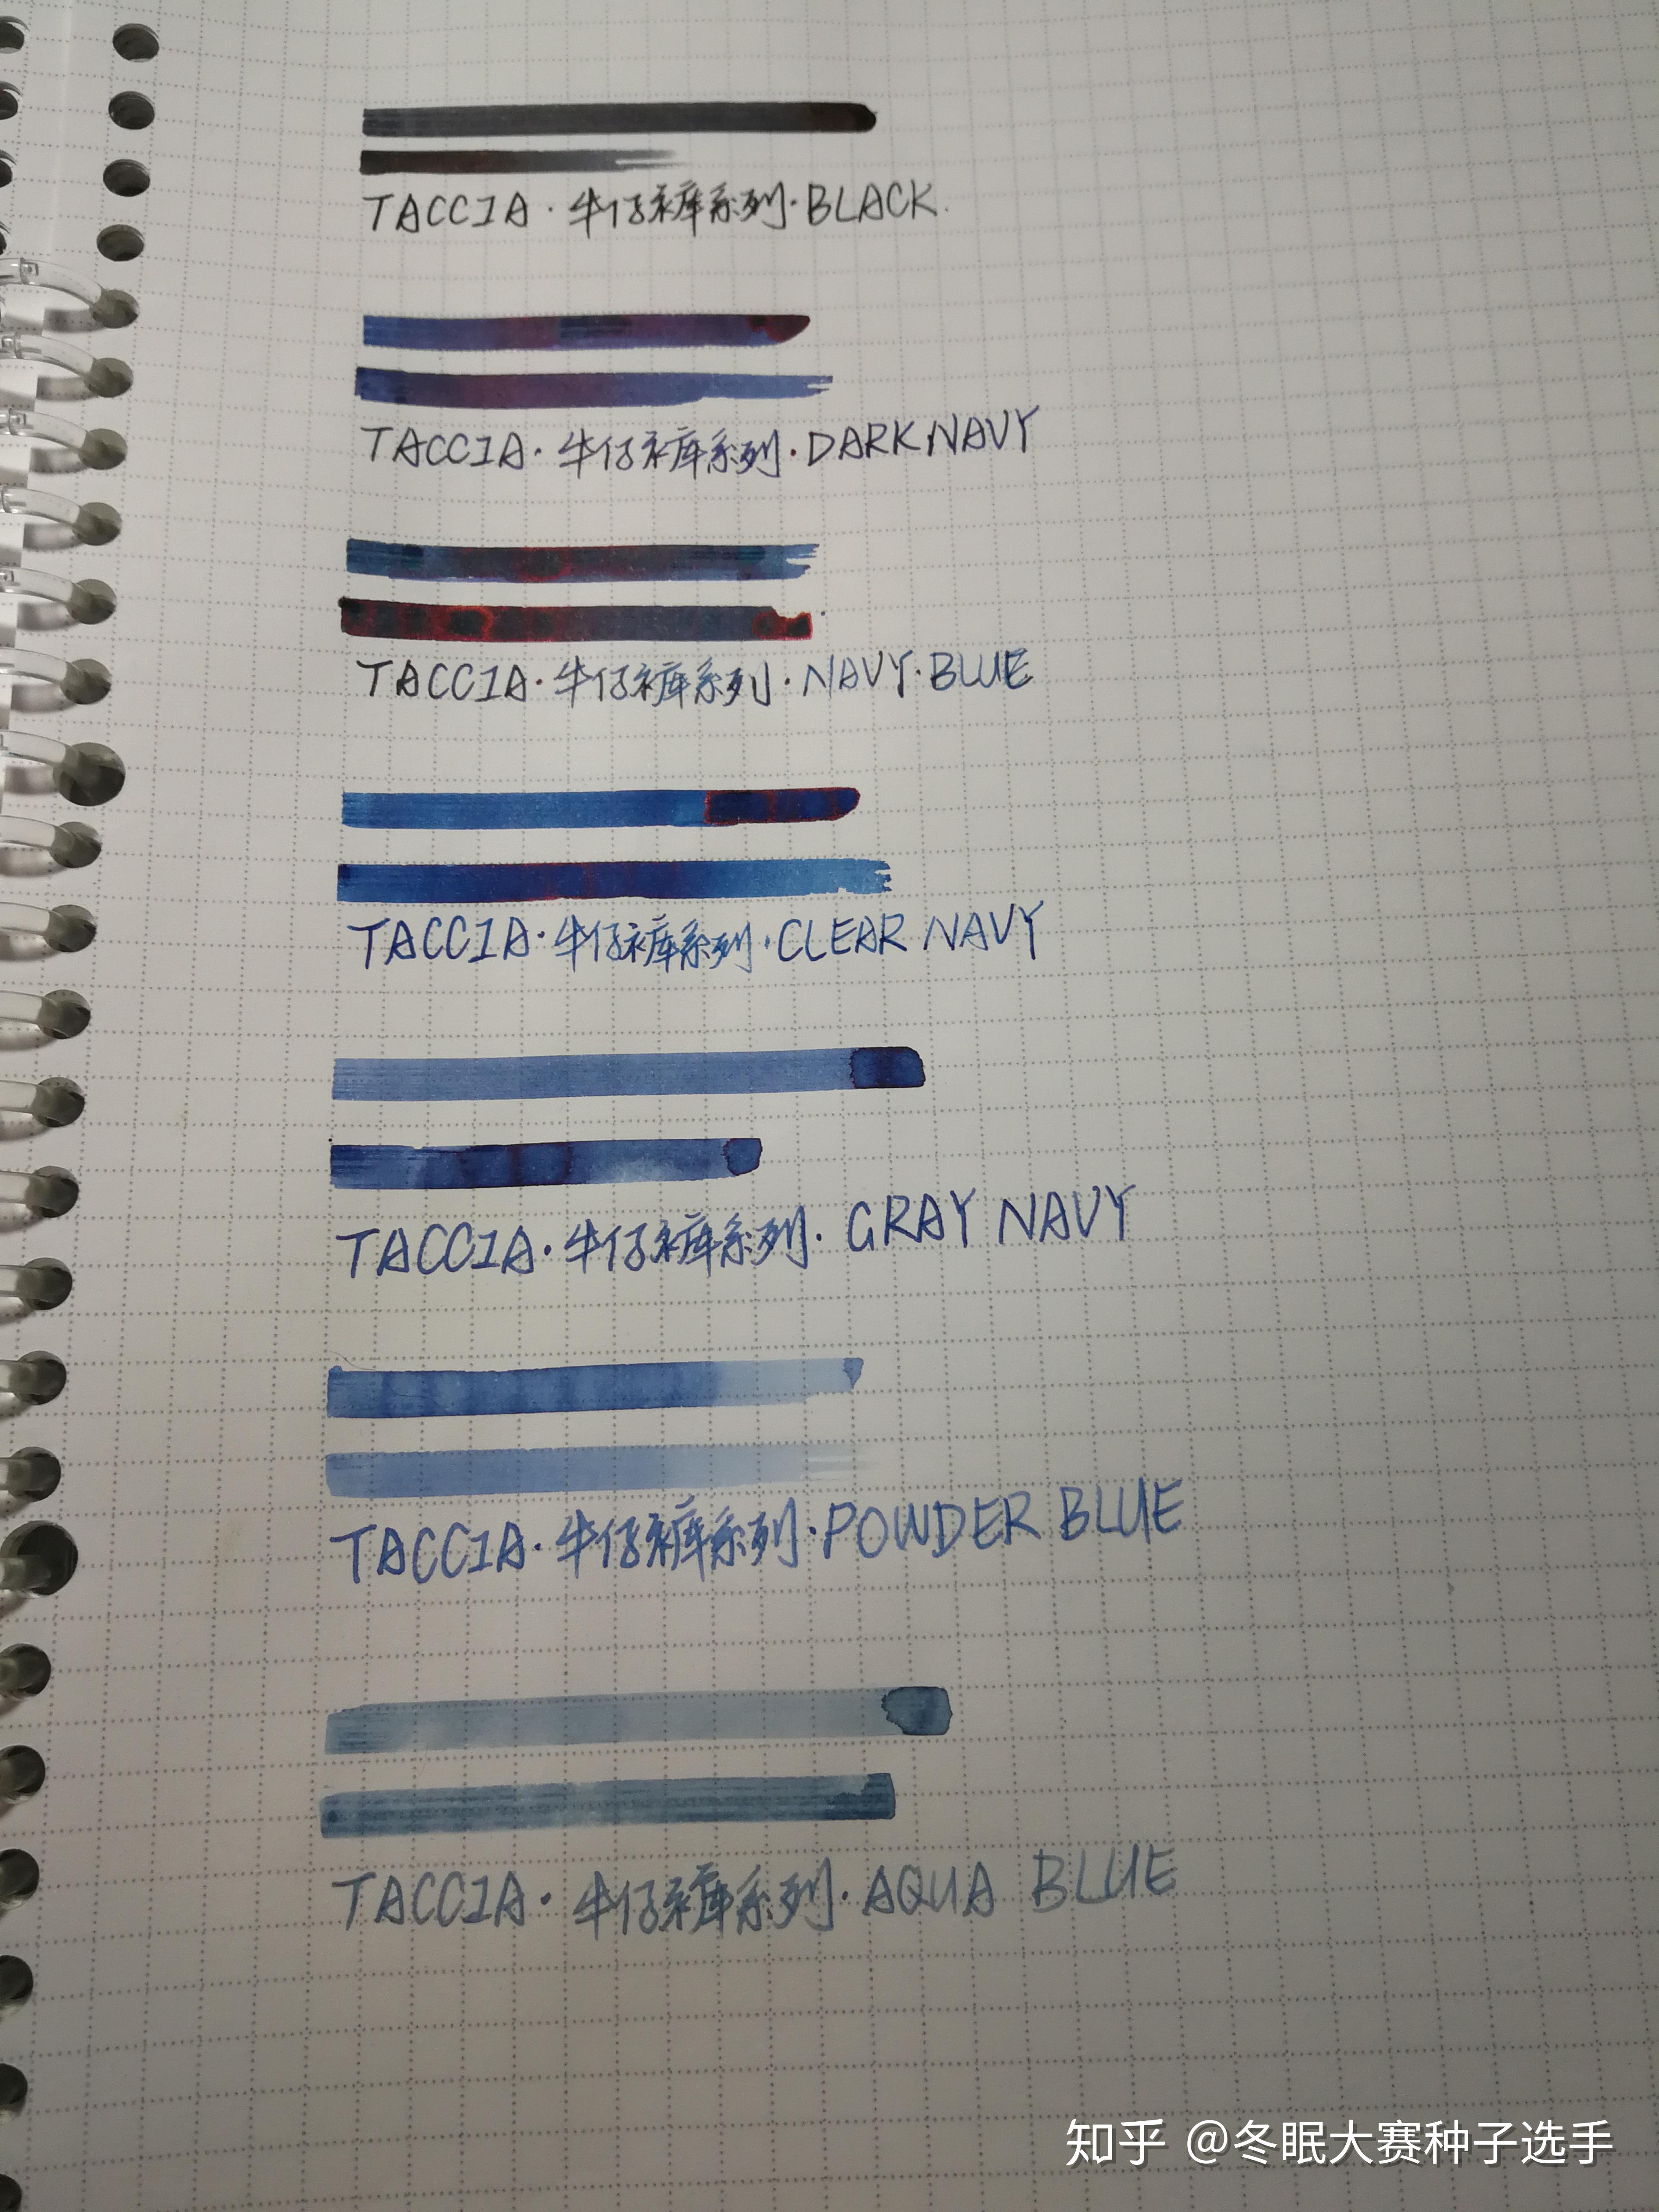 TACCIA·牛仔裤系列·BLACK.
TACCIA·牛仔裤系列·DARK NAVY
TACCIA·牛仔裤系列·NAVY·BLUE
TACCIA·牛仔裤系列·CLEAR NAVY
TACCIA·牛仔裤系列·GRAY NAVY
TACCIA·牛仔裤系列·POWDER BLUE
TACCIA·牛仔裤系列·AQUA BLUE
知乎 @冬眠大赛种子选手